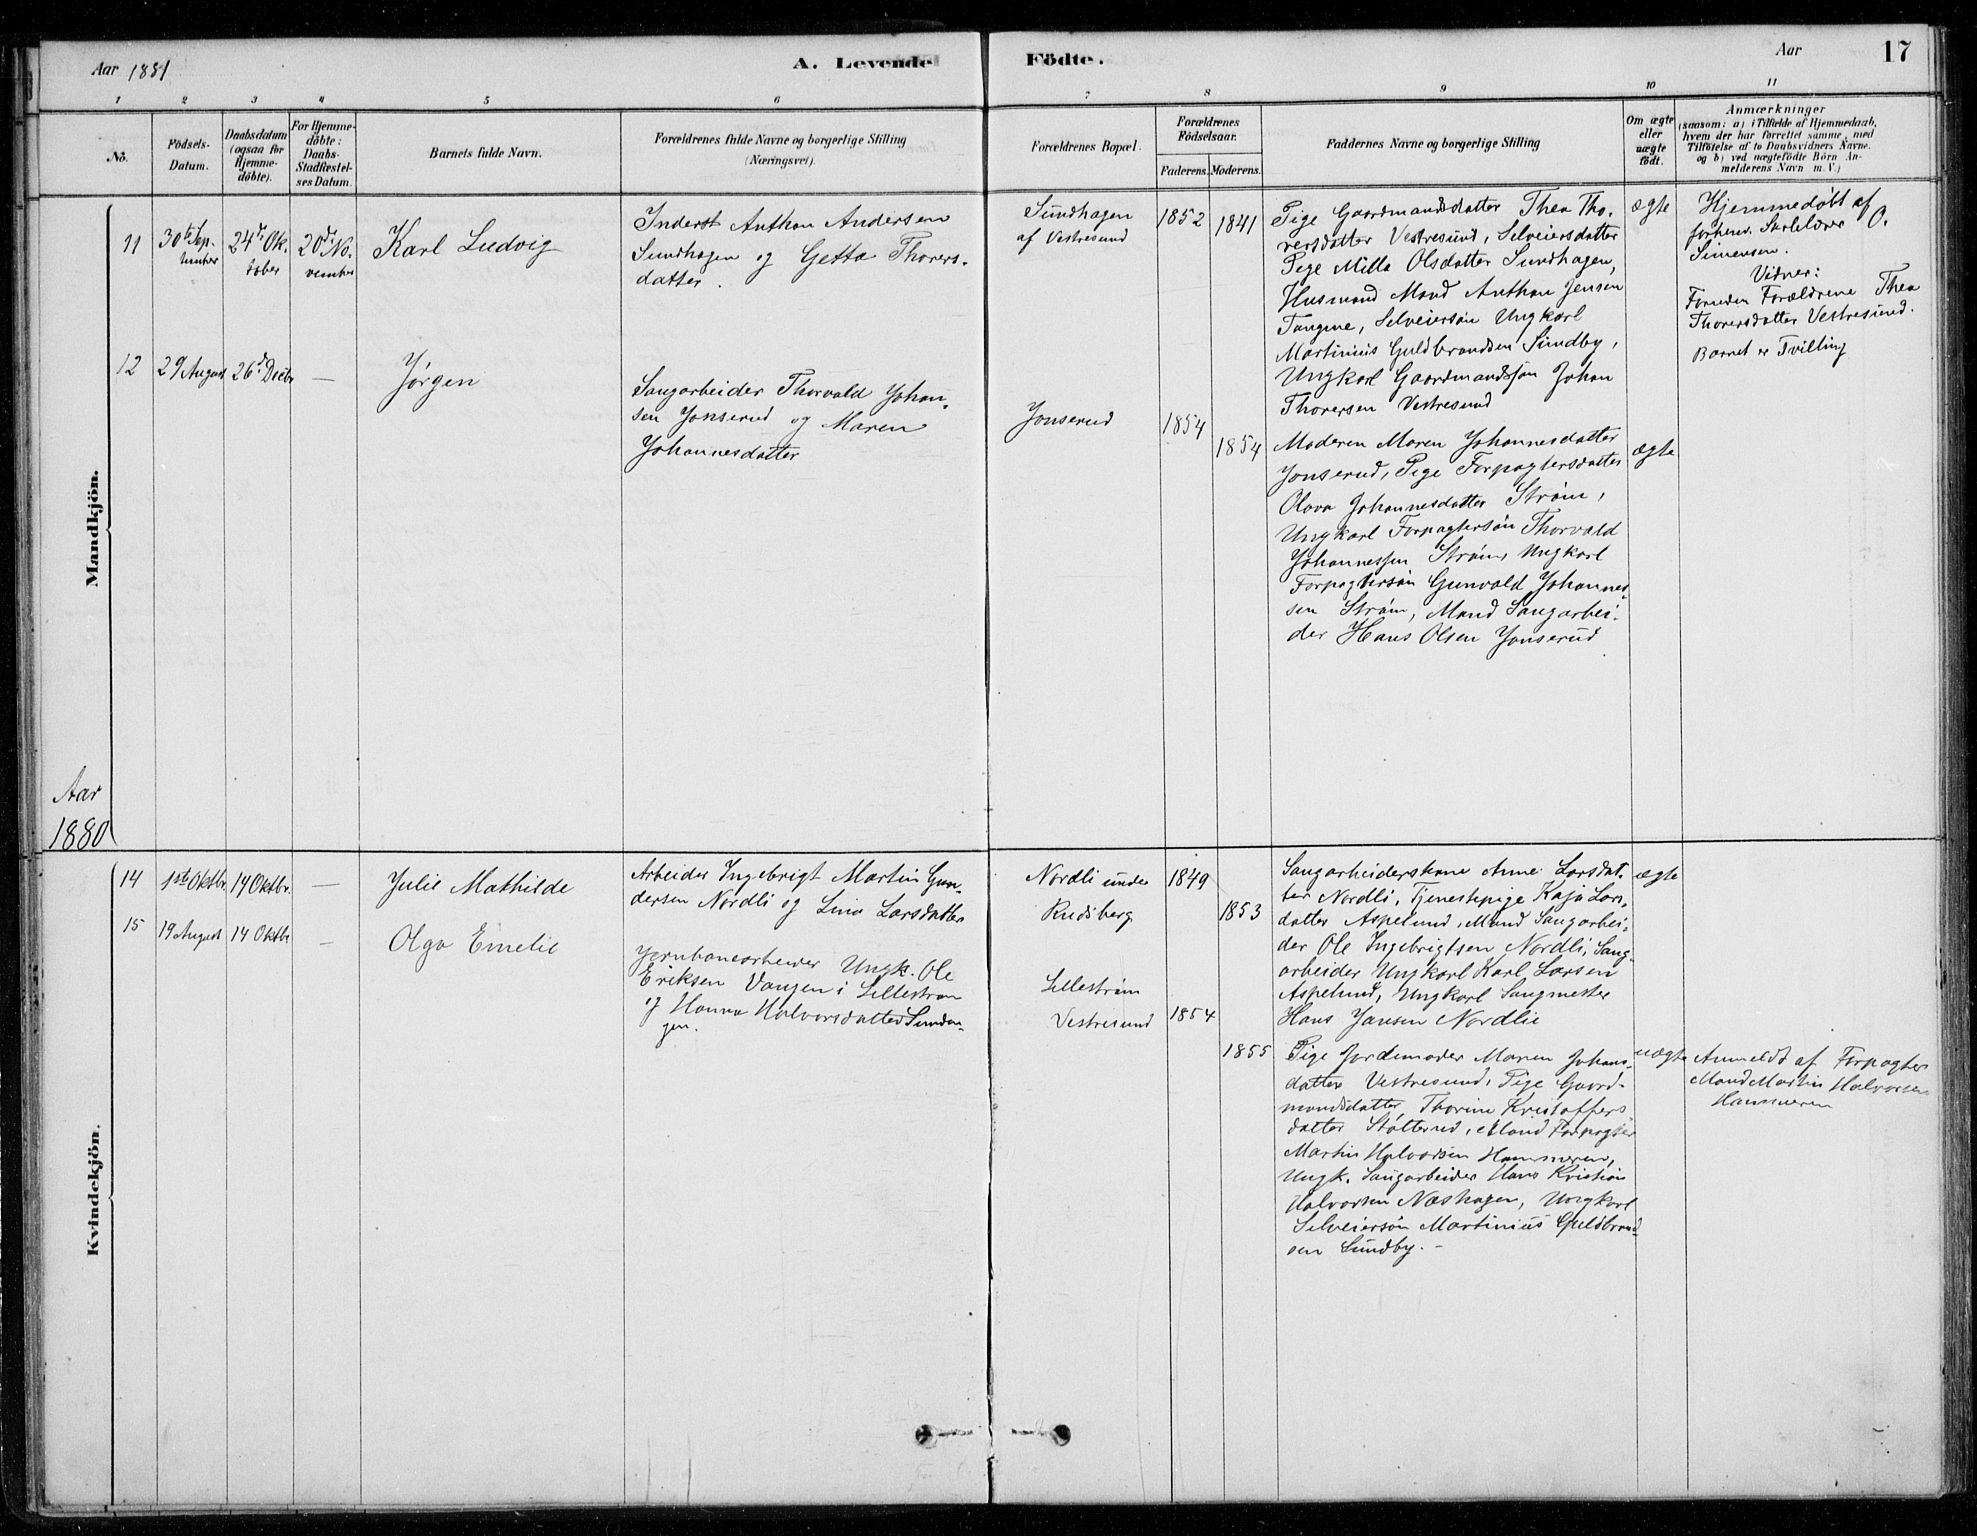 Aar 1881
A. Levende Födte.
Aar
17
1 2 3 4 5 6 7 8 9 10 11
No.
Födsels-
Datum.
Daabsdatum
(ogsaa for
Hjemme-
döbte).
For Hjemme-
döbte:
Daabs-
Stadfæstel-
ses Datum.
Barnets fulde Navn.
Forældrenes fulde Navne og borgerlige Stilling
(Næringsvei).
Forældrenes Bopæl.
Forældrenes
Födselsaar.
Faderens. Moderens.
Faddernes Navne og borgerlige Stilling
Om ægte
eller
uægte
födt.
Anmærkninger
(saasom: a) i Tilfælde af Hjemmedaab,
hvem der har forrettet samme, med
Tilföielse af to Daabsvidners Navne.
og b) ved uægtefödte Börn An-
melderens Navn m. V.)
Mandkjön.
11
30te Sep-
tember
24de Ok-
tober
20de No-
vember
Karl Ludvig
Inderst Anthon Andersen
Sundhagen og Getta Thorers-
datter.
Sundhagen
af Vestresund
1852
1841
Pige Gaardmandsdatter Thea Tho-
rersdatter Vestresund, Selveiersdatter
Pige Milla Olsdatter Sundhagen,
Husmand Mand Anthon Jensen
Tangene, Selveiersøn Ungkarl
Martinius Guldbrandsen Sundby,
Ungkarl Gaardmandssøn Johan
Thorersen Vestresund
ægte
Hjemmedøbt af
forhenv. Skolelærer O.
Simensen.
Vidner:
Foruden Forældrene Thea
Thorersdatter Vestresund.
Barnet er Tvilling
12
29 August
26de Decbr
—
Jørgen
Saugarbeider Thorvald Johan-
sen Jonserud og Maren
Johannesdatter
Jonserud
1854
1854
Moderen Maren Johannesdatter
Jonserud, Pige Forpagtersdatter
Olava Johannesdatter Strøm,
Ungkarl Forpagtersøn Thorvald
Johannessen Strøm, Ungkarl
Forpagtersøn Gunvald Johannes-
sen Strøm, Mand Saugarbei-
der Hans Olsen Jonserud
ægte
Aar
1880
Kvindekjön.
14
1ste Oktbr.
14 Oktbr.
—
Julie Mathilde
Arbeider Ingebrigt Martin Gun-
dersen Nordli og Lina Larsdatter
Nordli under
Rudsberg
1849
1853
Saugarbeiderskone Anne Larsdat-
ter Nordli, Tjenestepige Kaja Lars-
datter Aspelund, Mand Saugarbei-
der Ole Ingebrigtsen Nordli, Saug-
arbeider Ungkarl Karl Larsen
Aspelund, Ungkarl Saugmester
Hans Jansen Nordlie
ægte
15
19 August
14 Oktbr
—
Olga Emelie
Jernbanearbeider Ungk. Ole
Eriksen Vangen i Lillestrøm
og Hanna Halvorsdatter Sundan-
gen.
Lillestrøm
Vestresund
1854
1855
Pige Jordemoder Maren Johans-
datter Vestresund, Pige Gaard-
mandsdatter Thorine Kristoffers-
datter Støtterud, Mand Forpagter
Martin Halvorsen Hammeren,
Ungk. Saugarbeider Hans Kristian
Halvorsen Næshagen, Ungkarl
Selveiersøn Martinius Guldbrand-
sen Sundby. –
uægte
Anmeldt af Forpagter
Mand Martin Halvorsen
Hammeren